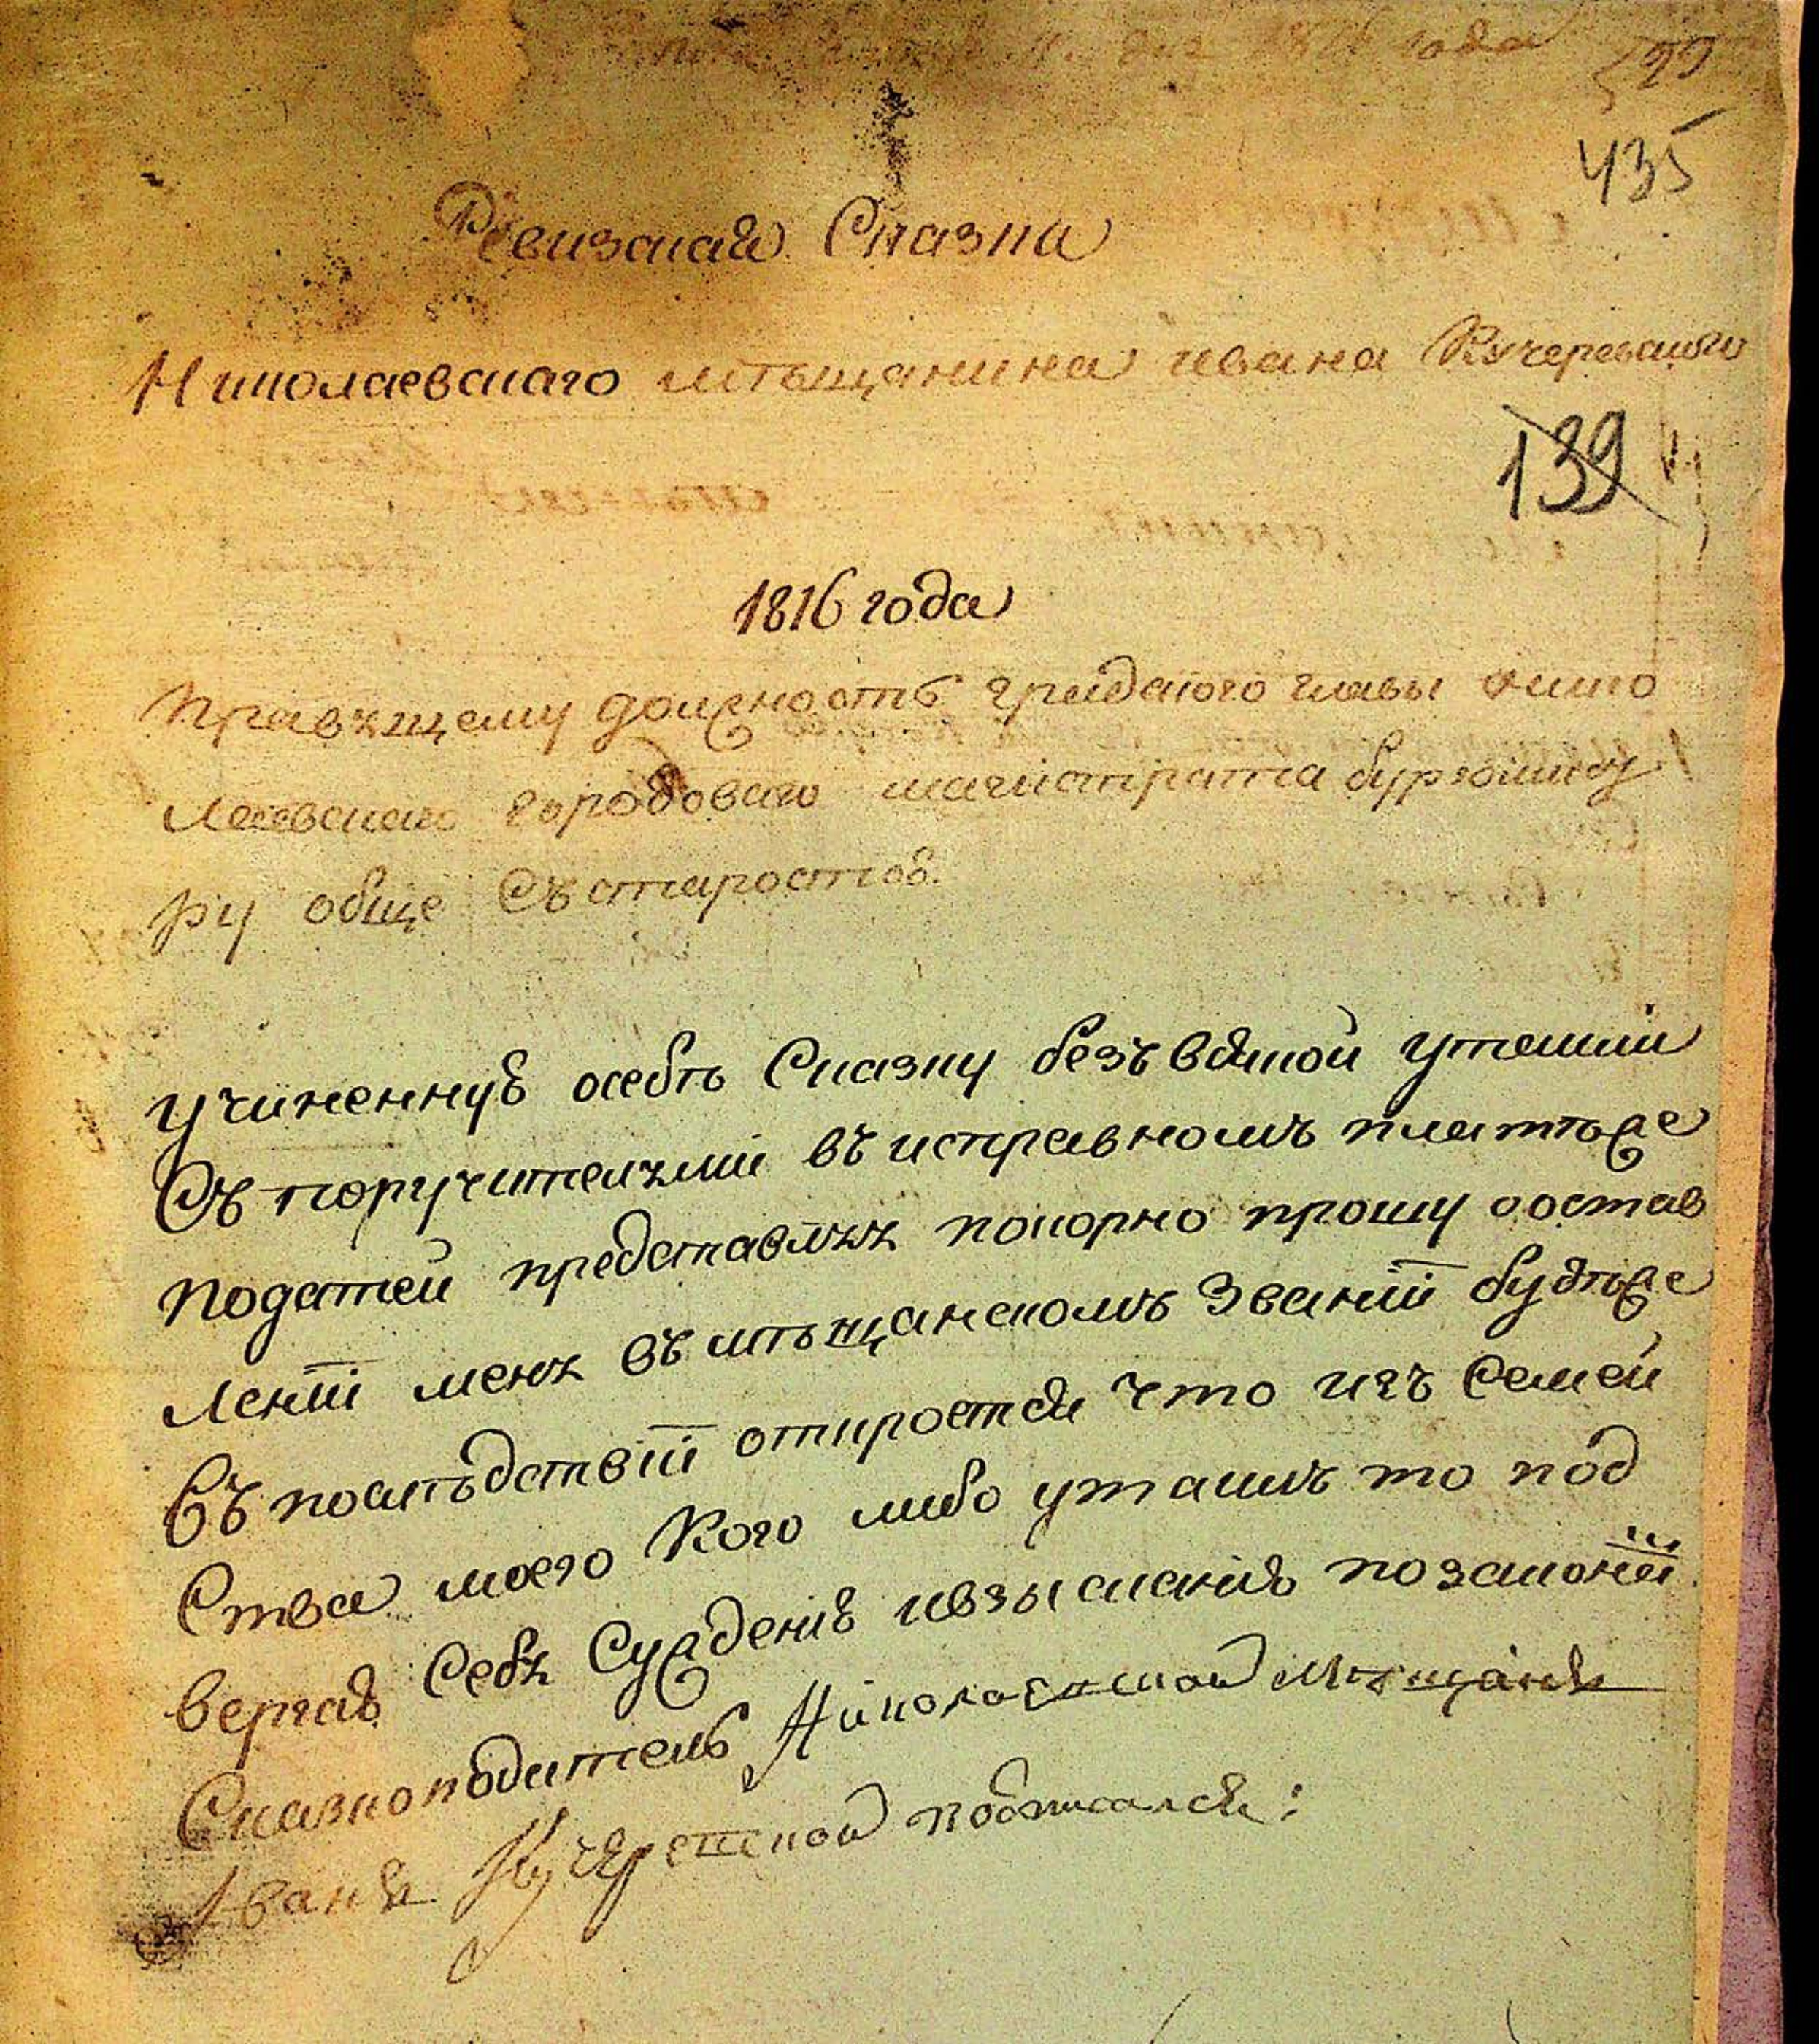 дня 18 года
435
Ревизская Сказка
Николаевскаго мѣщанина ивана Кучеревского
139
1816 года
Правящему должность градского главы Нико
Лаевскаго городоваго магистрата бургомист
ру обще Съ старостою.
учиненную осебѣ Сказку безъ всякой утайки
Съ поручителями въ исправномъ платѣже
податей представляя покорно прошу о остав
Лениі меня въ мѣщанскомъ Званиі будѣже
Въ послѣдствиі откроется что изъ Семей
Ства моего Кого либо утаилъ то под
вергаю Себя Сужденію и взысканію по законѣ
Сказкоподатель Николаевской мещанинъ
Иванъ Кучеревской подписался: